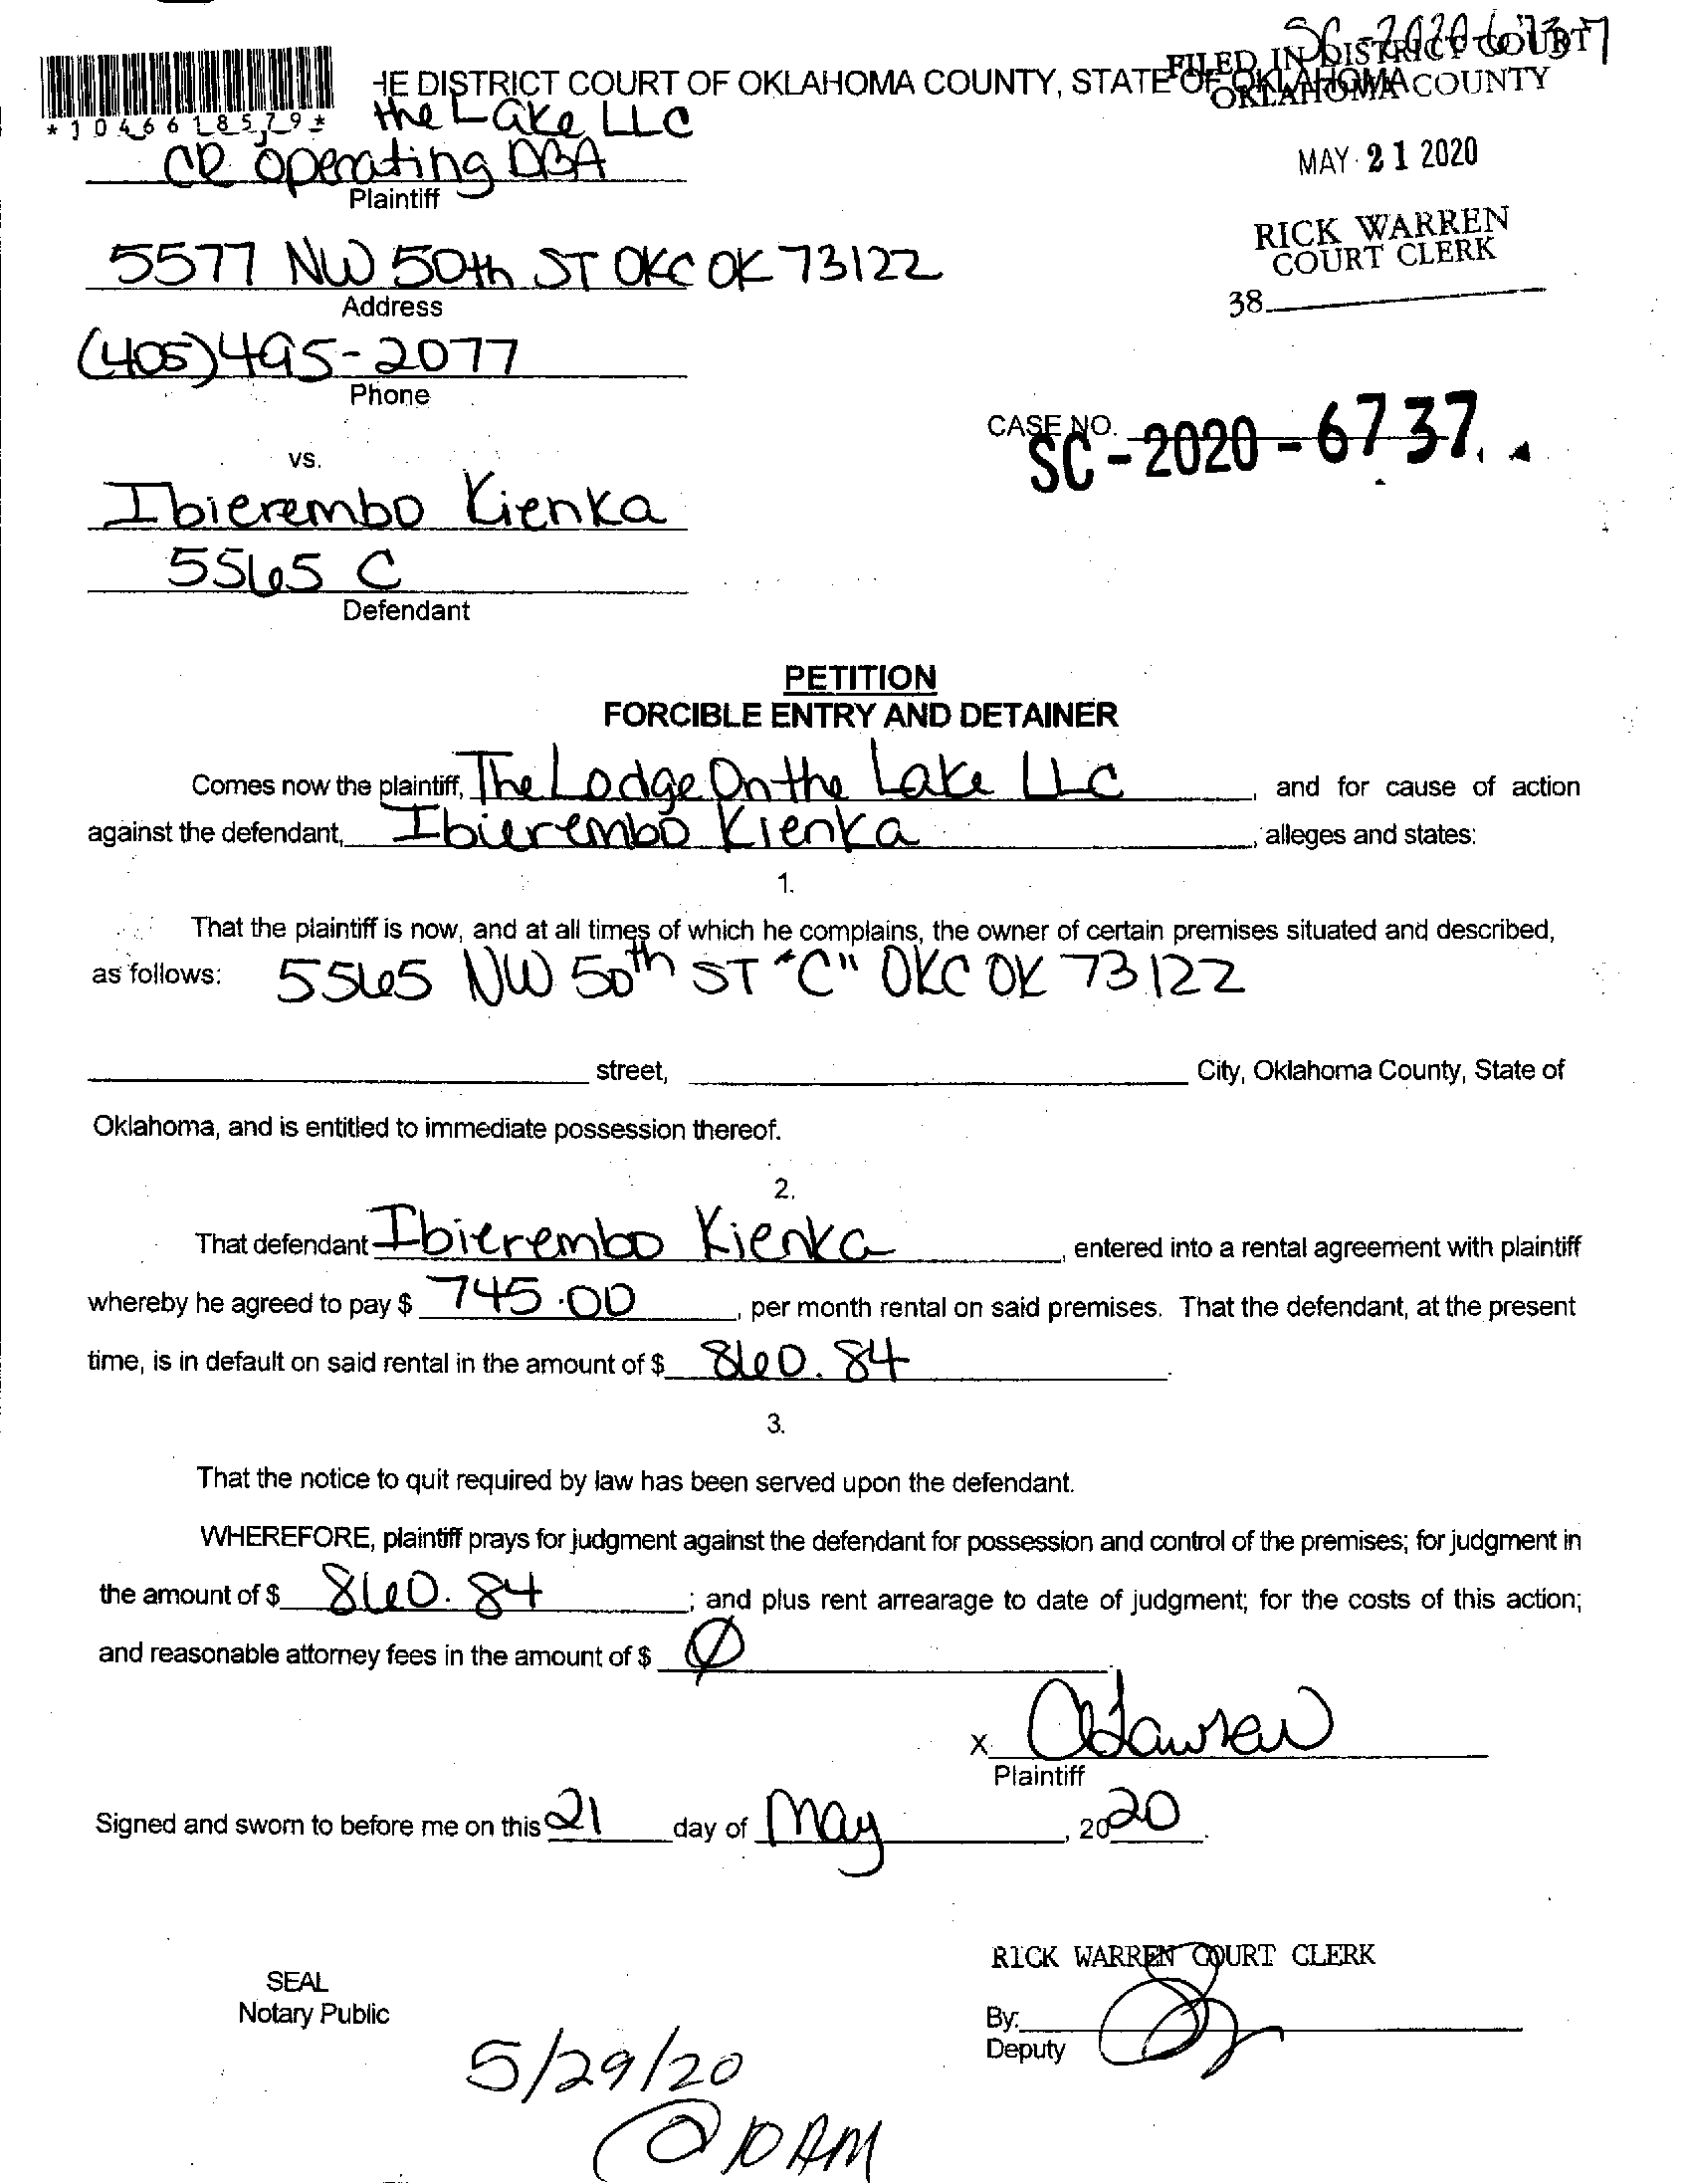 SC-2020-6737
FILED IN DISTRICT COURT
HE DISTRICT COURT OF OKLAHOMA COUNTY, STATE OF OKLAHOMA
OKLAHOMA COUNTY
*1046618579*
the Lake LLC
CR Operating DBA
Plaintiff
MAY 21 2020
RICK WARREN
COURT CLERK
38
5577 NW 50th ST OKC OK 73122
Address
(405)495-2077
Phone
CASE NO. SC-2020-6737
vs.
Ibierembo Kienka
5565 C
Defendant
PETITION
FORCIBLE ENTRY AND DETAINER
Comes now the plaintiff, The Lodge On the Lake LLC, and for cause of action
against the defendant, Ibierembo Kienka, alleges and states:
1.
That the plaintiff is now, and at all times of which he complains, the owner of certain premises situated and described,
as follows: 5565 NW 50th ST "C" OKC OK 73122
street, City, Oklahoma County, State of
Oklahoma, and is entitled to immediate possession thereof.
2.
That defendant Ibierembo Kienka, entered into a rental agreement with plaintiff
whereby he agreed to pay $ 745.00, per month rental on said premises. That the defendant, at the present
time, is in default on said rental in the amount of $ 860.84.
3.
That the notice to quit required by law has been served upon the defendant.
WHEREFORE, plaintiff prays for judgment against the defendant for possession and control of the premises; for judgment in
the amount of $ 860.84; and plus rent arrearage to date of judgment; for the costs of this action;
and reasonable attorney fees in the amount of $ Ø.
X
Plaintiff
Signed and sworn to before me on this 21 day of May, 2020.
RICK WARREN COURT CLERK
SEAL
Notary Public
By:
Deputy
5/29/20
@ 10 AM